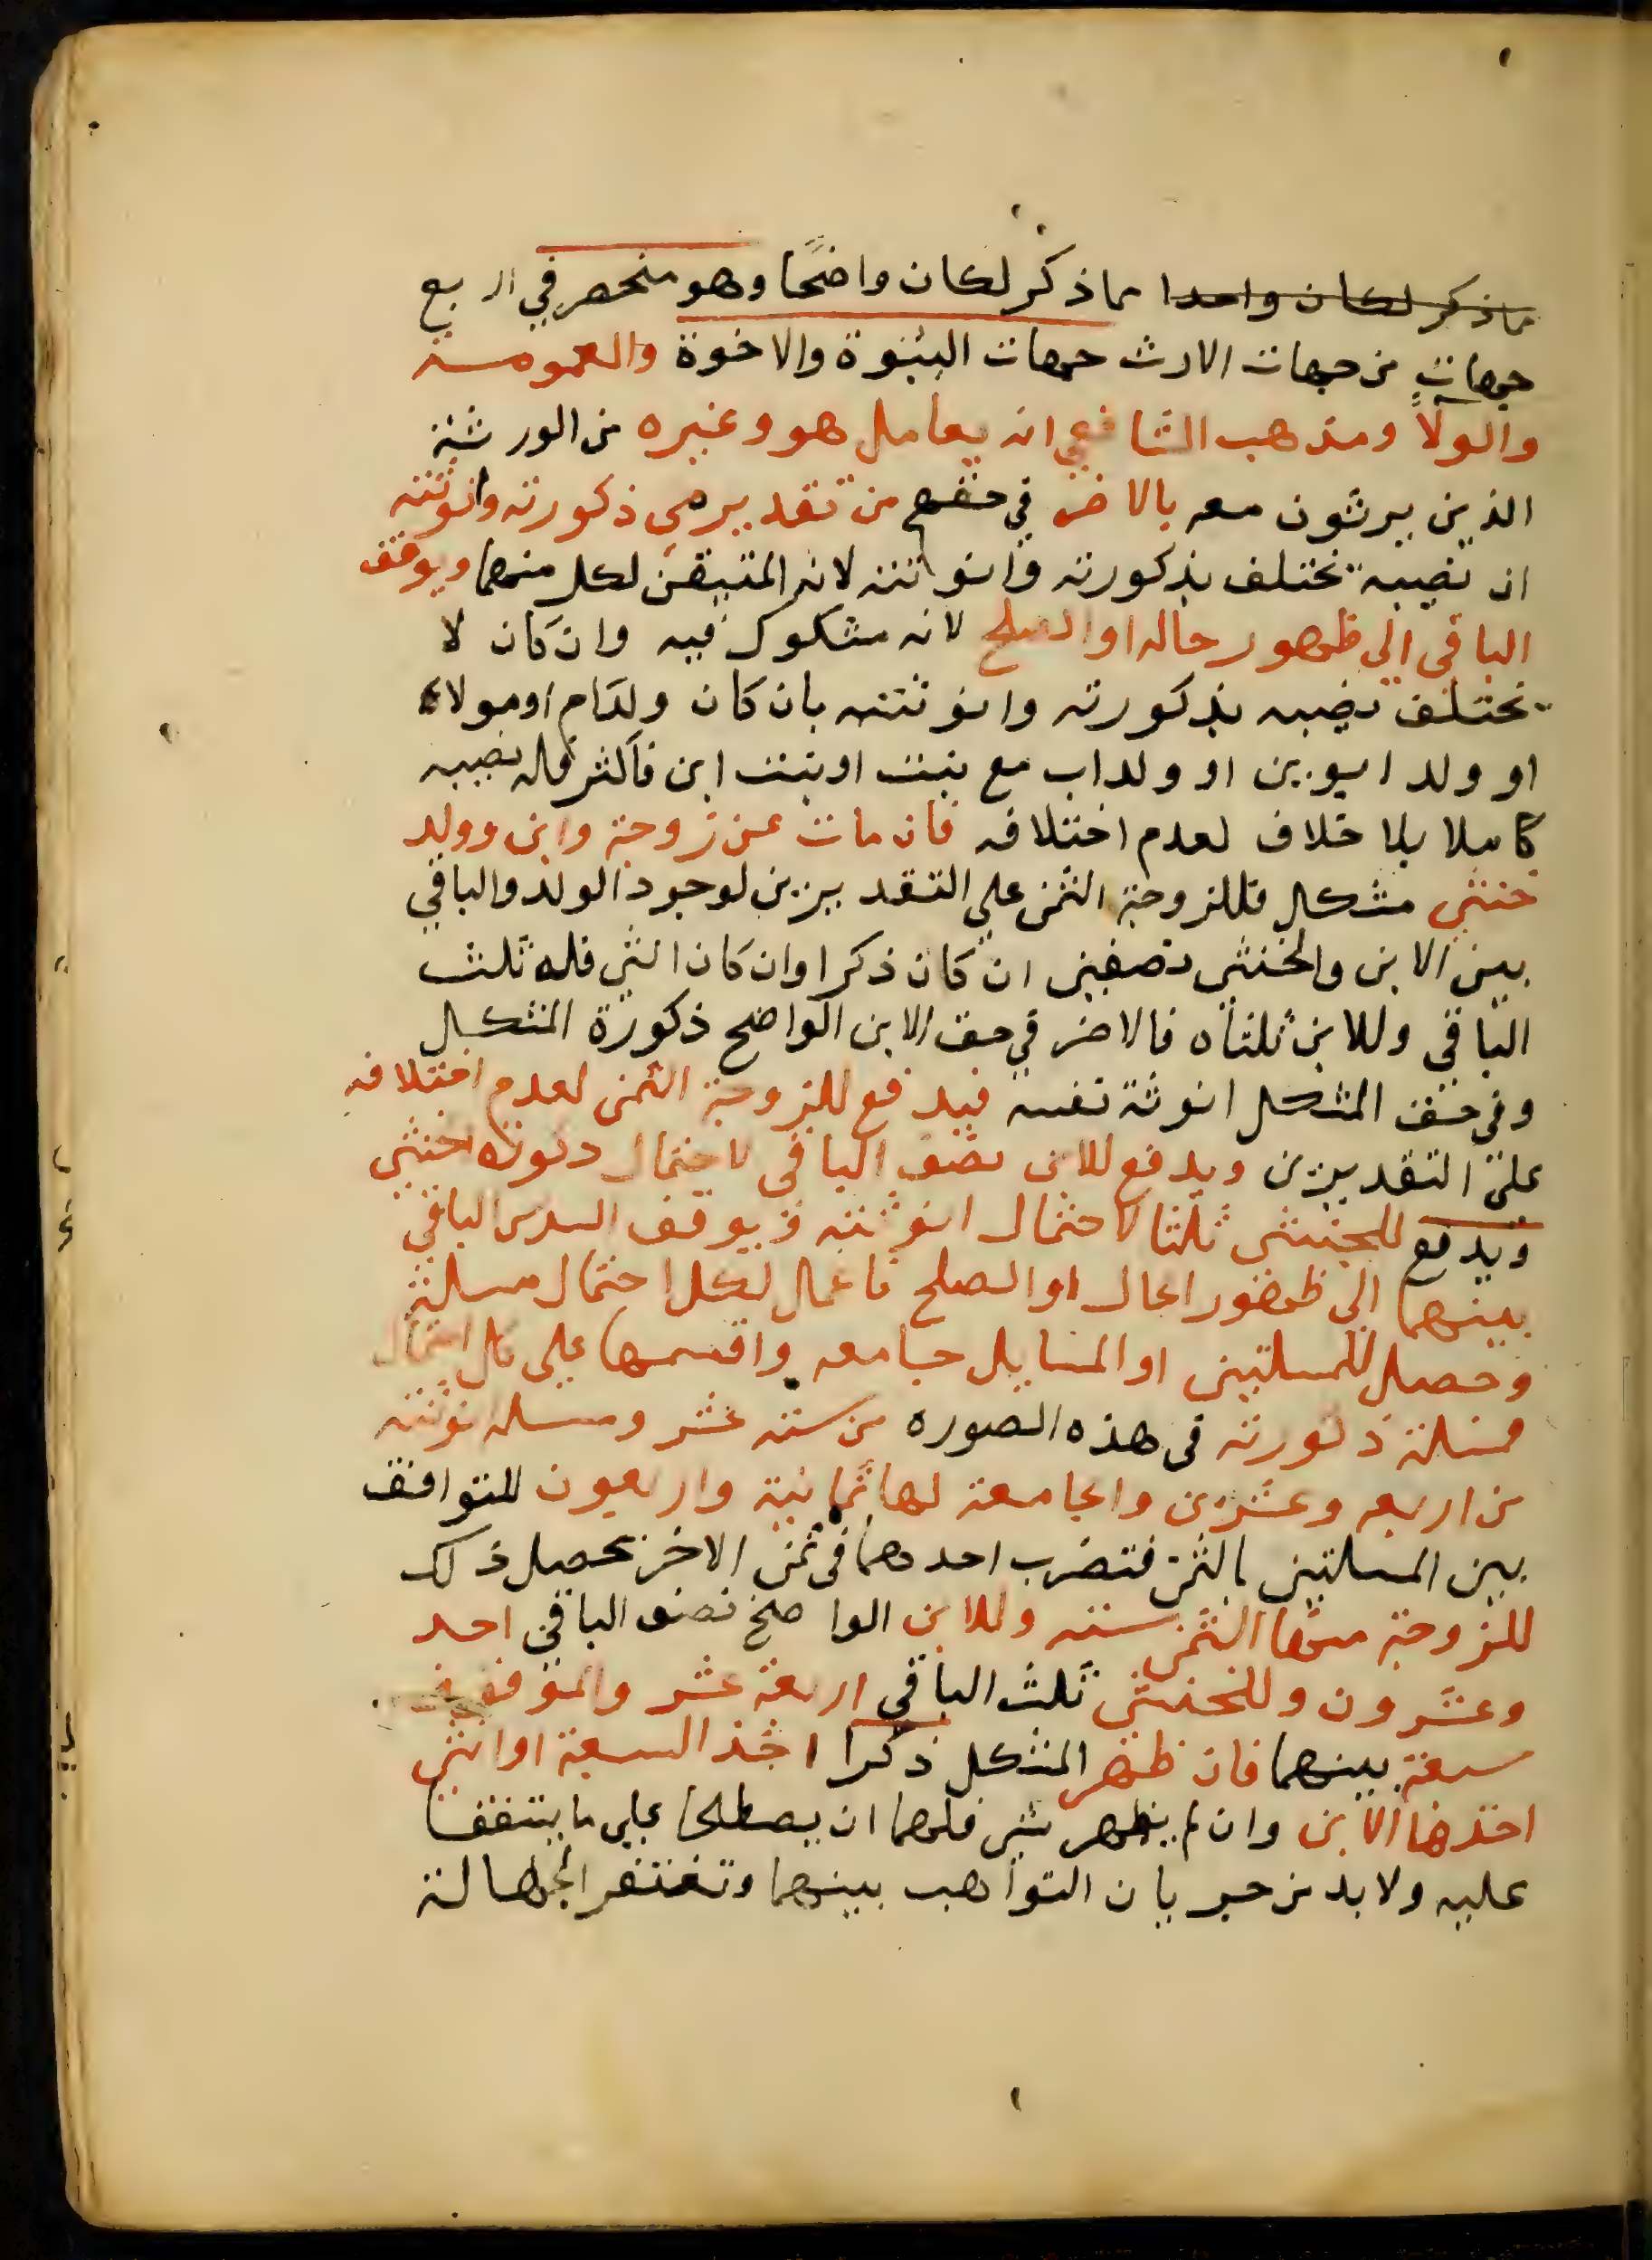 مما ذكر لكان واحدا مما ذكر لكان واضحًا وهو منحصر في اربع
جهات من جهات الارث جهات البنوة والاخوة والعمومة
والولاً ومذهب الشافعي انه يعامل هو وغيره من الورثة
الذين يرثون معه بالاضر في حقهم من تقديرمي ذكورته وانوثته
ان نصيبه يختلف بذكورته وانوثته لانه المتيقن لكل منهما ويوقف
الباقي الي ظهور حاله او الصلح لانه مشكوك فيه وان كان لا
يختلف نصيبه بذكورته وانوثته بان كان ولد ام او مولاه
او ولد ابوين او ولد اب مع بنت او بنت ابن فاكثر فله نصيبه
كاملا بلا خلاف لعدم اختلافه فان مات عن زوجة وابن وولد
خنثي مشكل فللزوجة الثمن علي التقديرين لوجود الولد والباقي
بين الابن والخنثي نصفين ان كان ذكرا وان كان انثي فله ثلث
الباقي وللابن ثلثاه فالاضر في حق الابن الواضح ذكورة المشكل
وفي حق المشكل انوثة نفسه فيدفع للزوجة الثمن لعدم اختلافه
علي التقديرين ويدفع للابن نصف الباقي لاحتمال ذكورة الخنثي
ويدفع للخنثي ثلثا لاحتمال انوثته ويوقف السدس الباقي
بينهما الي ظهور الحال او الصلح فاعمال لكل احتمال مسلة
وحصل للمسلتين او المسايل جامعه واقسمها علي كل احتمال
فمسلة ذكورته في هذه الصوره من ستة عشر ومسله انوثته
من اربعه وعشرين والجامعة لها ثمانية واربعون للتوافق
بين المسلتين بالثمن فتضرب احدهما في ثمن الاخر يحصل ذلك
للزوجة منها الثمن ستة وللابن الواضح نصف الباقي احد
وعشرون وللخنثي ثلث الباقي اربعة عشر والموقوف
سبعة بينهما فان ظهر المشكل ذكرا اخذ السبعة او انثي
اخذها الابن وان لم يظهر شي فلهما ان يصطلحا علي ما يتفقا
عليه ولا بد من جريان التواهب بينهما وتغتفر الجهالة